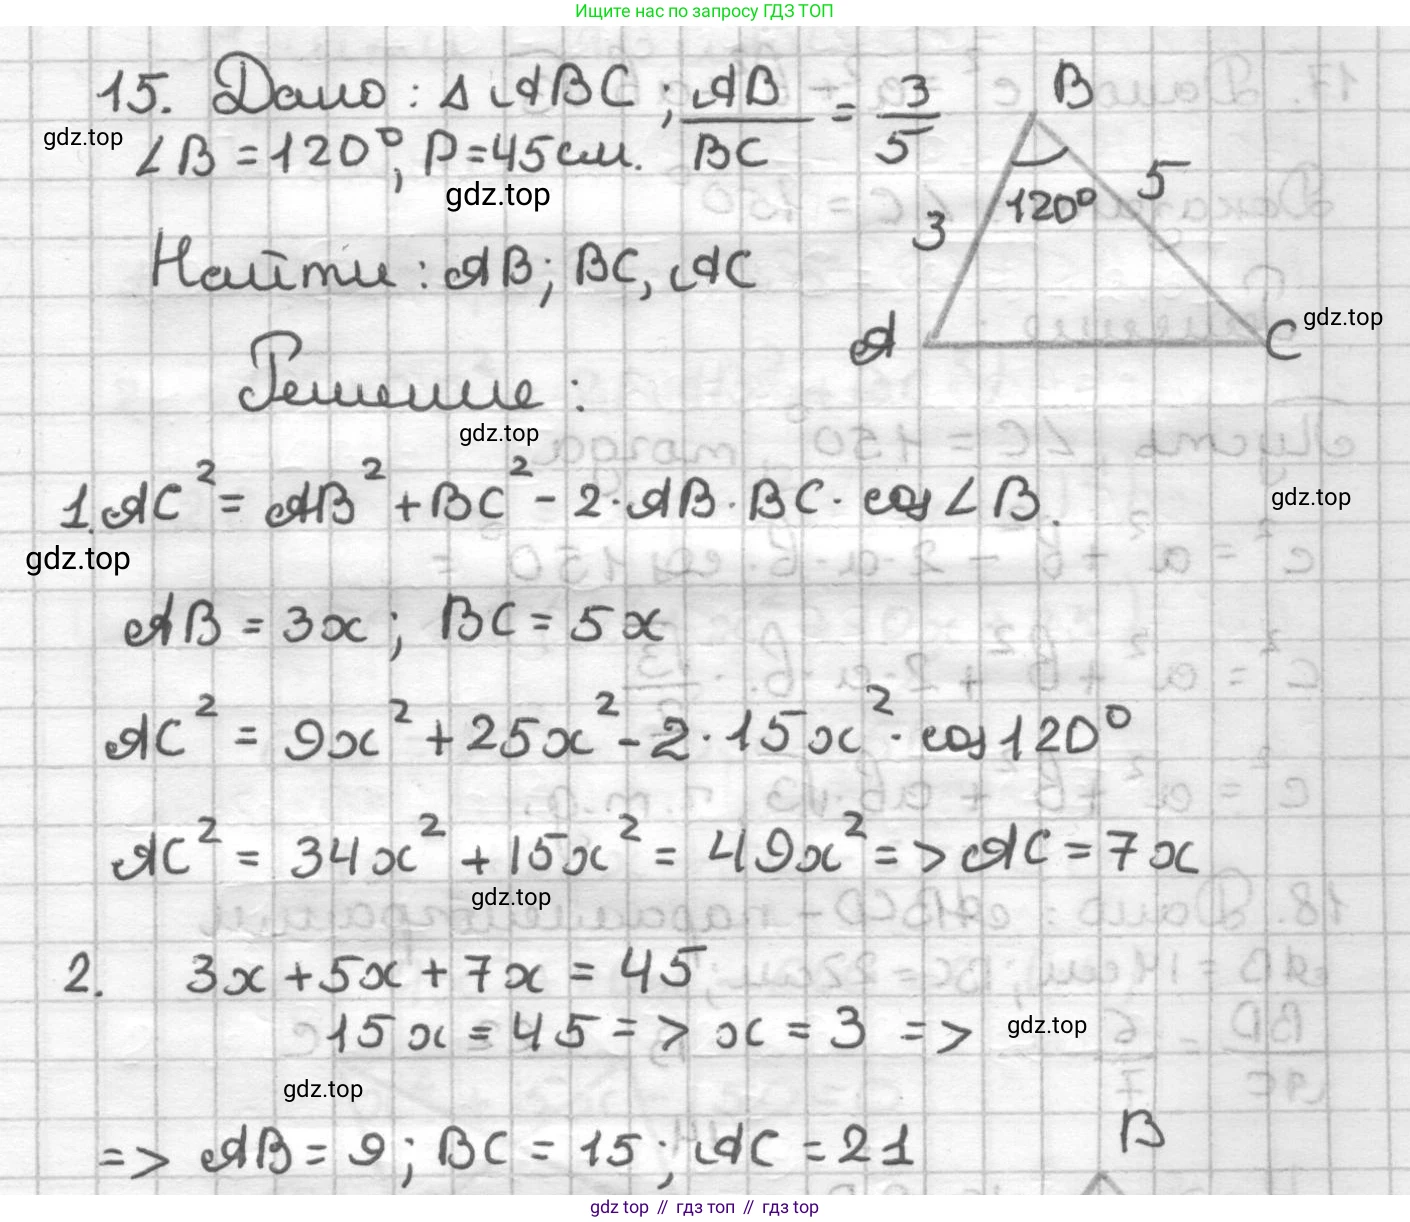 Ищите нас по запросу ГДЗ ТОП
15. Дано: Δ ABC; AB/BC = 3/5
gdz.top
∠B = 120°, P = 45 см.
gdz.top
B
5
120°
3
A
C
gdz.top
Найти: AB; BC, AC
Решение:
gdz.top
1. AC² = AB² + BC² - 2·AB·BC·cos∠B.
gdz.top
gdz.top
AB = 3x; BC = 5x
AC² = 9x² + 25x² - 2·15x²·cos120°
AC² = 34x² + 15x² = 49x² => AC = 7x
gdz.top
2. 3x + 5x + 7x = 45
15x = 45 => x = 3 =>
gdz.top
gdz.top
=> AB = 9; BC = 15; AC = 21
B
gdz top // гдз топ // gdz top